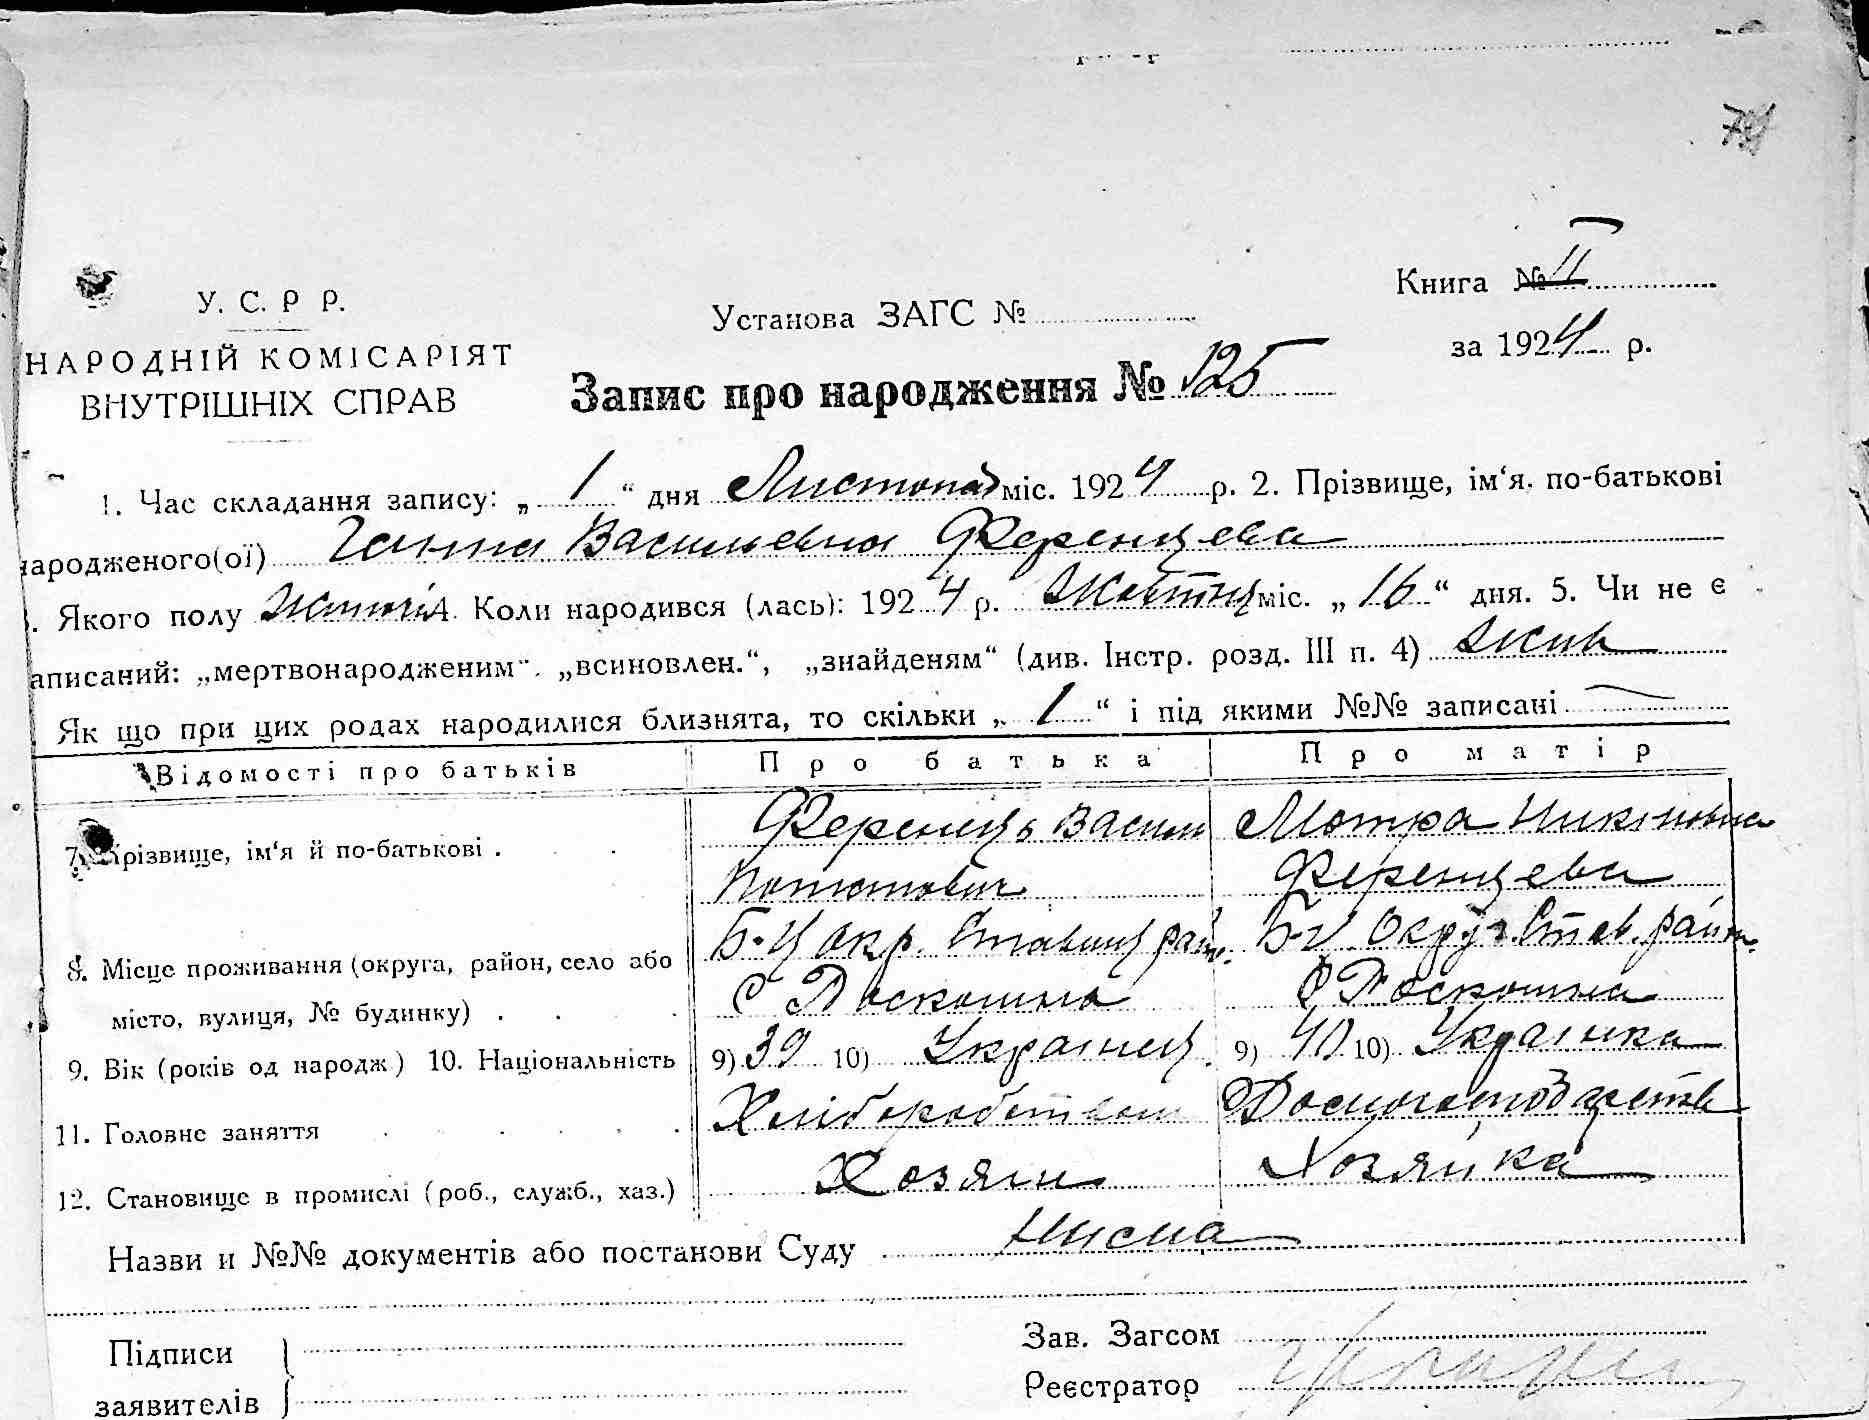 79
Книга № II
У. С. Р Р.
Установа ЗАГС №
НАРОДНІЙ КОМІСАРІЯТ
за 1924 р.
ВНУТРІШНІХ СПРАВ
Запис про народження № 125
1. Час складання запису: „ 1 “ дня Листопад міс. 1924 р. 2. Прізвище, ім‘я, по-батькові
народженого(ої) Ганна Васильевна Ференцева
. Якого полу жіночія. Коли народився (лась): 1924 р. Жовтня міс. „ 16 “ дня. 5. Чи не є
аписаний: „мертвонародженим“. „всиновлен.“, „знайденям“ (див. Інстр. розд. III п. 4) жив
Як що при цих родах народилися близнята, то скільки „ 1 “ і під якими №№ записані —
Відомості про батьків Про батька Про матір
7. Прізвище, ім‘я й по-батькові . Ференець Васил Мотра Никиповна
Ференцева
8. Місце проживання (округа, район, село або Б-Ц окр. Ставищ райо. Б-Ц Округ. Став. район.
місто, вулиця, № будинку) . С Роскошна С Роскошна
9. Вік (років од народж) 10. Національність 9) 39 10) Українец 9) 40 10) Українка
11. Головне заняття Хліборобством Домогосподарств
12. Становище в промислі (роб., служб., хаз.) Хозяин Хозяйка
Назви и №№ документів або постанови Суду
Підписи
заявителів
Зав. Загсом
Реєстратор